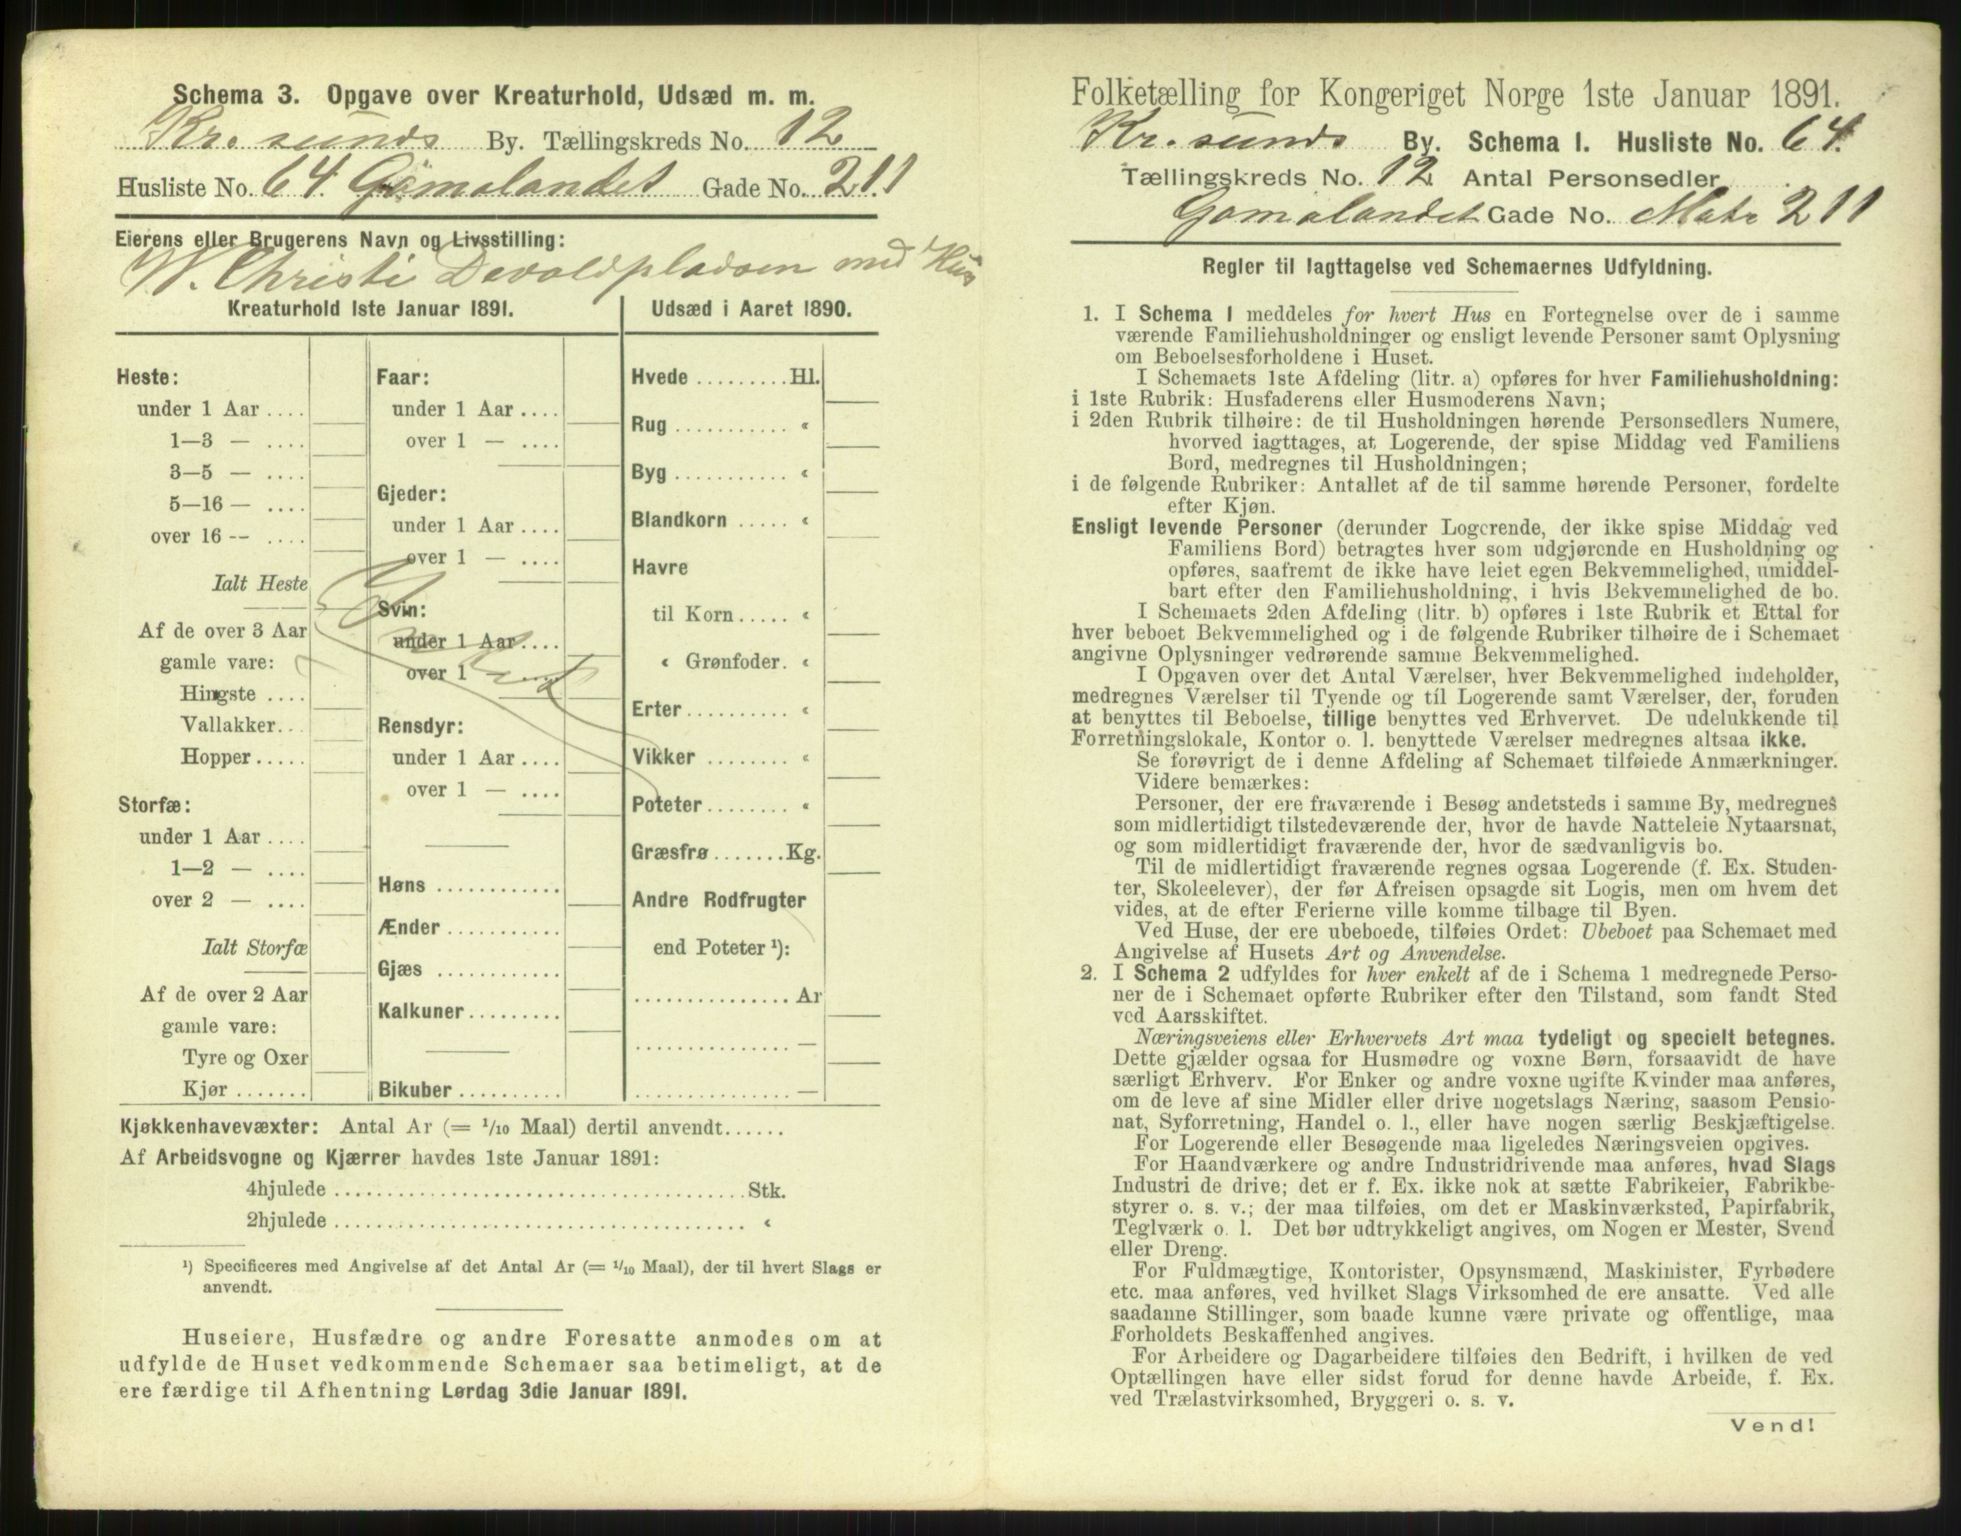 Schema 3. Opgave over Kreaturhold, Udsæd m. m.
Kr. sunds By. Tællingskreds No. 12
Husliste No. 64. Gomalandet Gade No. 211
Eierens eller Brugerens Navn og Livsstilling:
W. Christi Devoldpladsen med Hus
Kreaturhold 1ste Januar 1891.
Heste:
under 1 Aar ....
1—3 — ....
3—5 — ....
5—16 — ....
over 16 -- ....
Ialt Heste
Af de over 3 Aar
gamle vare:
Hingste ....
Vallakker...
Hopper .....
Storfæ:
under 1 Aar ....
1—2 — ....
over 2 — ....
Ialt Storfæ
Af de over 2 Aar
gamle vare:
Tyre og Oxer
Kjør .......
Faar:
under 1 Aar ....
over 1 — ....
Gjeder:
under 1 Aar ....
over 1 — ....
Svin:
under 1 Aar ....
over 1 — ....
Rensdyr:
under 1 Aar ....
over 1 — ....
Høns ............
Ænder ...........
Gjæs ............
Kalkuner .........
Bikuber ..........
Udsæd i Aaret 1890.
Hvede .........Hl.
Rug ........... «
Byg ........... «
Blandkorn ..... «
Havre
til Korn ..... «
« Grønfoder. «
Erter .......... «
Vikker ........ «
Poteter ........ «
Græsfrø .......Kg.
Andre Rodfrugter
end Poteter ¹):
............... Ar
............... —
............... —
Kjøkkenhavevæxter: Antal Ar (= 1/10 Maal) dertil anvendt......
Af Arbeidsvogne og Kjærrer havdes 1ste Januar 1891:
4hjulede ..................................... Stk.
2hjulede ..................................... «
¹) Specificeres med Angivelse af det Antal Ar (= 1/10 Maal), der til hvert Slags er
anvendt.
Huseiere, Husfædre og andre Foresatte anmodes om at
udfylde de Huset vedkommende Schemaer saa betimeligt, at de
ere færdige til Afhentning Lørdag 3die Januar 1891.
Folketælling for Kongeriget Norge 1ste Januar 1891.
Kr. sunds By. Schema I. Husliste No. 64.
Tællingskreds No. 12 Antal Personsedler
Gomalandet Gade No. Matr 211
Regler til Iagttagelse ved Schemaernes Udfyldning.
1. I Schema I meddeles for hvert Hus en Fortegnelse over de i samme
værende Familiehusholdninger og ensligt levende Personer samt Oplysning
om Beboelsesforholdene i Huset.
I Schemaets 1ste Afdeling (litr. a) opføres for hver Familiehusholdning:
i 1ste Rubrik: Husfaderens eller Husmoderens Navn;
i 2den Rubrik tilhøire: de til Husholdningen hørende Personsedlers Numere,
hvorved iagttages, at Logerende, der spise Middag ved Familiens
Bord, medregnes til Husholdningen;
i de følgende Rubriker: Antallet af de til samme hørende Personer, fordelte
efter Kjøn.
Ensligt levende Personer (derunder Logerende, der ikke spise Middag ved
Familiens Bord) betragtes hver som udgjørende en Husholdning og
opføres, saafremt de ikke have leiet egen Bekvemmelighed, umiddel-
bart efter den Familiehusholdning, i hvis Bekvemmelighed de bo.
I Schemaets 2den Afdeling (litr. b) opføres i 1ste Rubrik et Ettal for
hver beboet Bekvemmelighed og i de følgende Rubriker tilhøire de i Schemaet
angivne Oplysninger vedrørende samme Bekvemmelighed.
I Opgaven over det Antal Værelser, hver Bekvemmelighed indeholder,
medregnes Værelser til Tyende og til Logerende samt Værelser, der, foruden
at benyttes til Beboelse, tillige benyttes ved Erhvervet. De udelukkende til
Forretningslokale, Kontor o. l. benyttede Værelser medregnes altsaa ikke.
Se forøvrigt de i denne Afdeling af Schemaet tilføiede Anmærkninger.
Videre bemærkes:
Personer, der ere fraværende i Besøg andetsteds i samme By, medregnes
som midlertidigt tilstedeværende der, hvor de havde Natteleie Nytaarsnat,
og som midlertidigt fraværende der, hvor de sædvanligvis bo.
Til de midlertidigt fraværende regnes ogsaa Logerende (f. Ex. Studen-
ter, Skoleelever), der før Afreisen opsagde sit Logis, men om hvem det
vides, at de efter Ferierne ville komme tilbage til Byen.
Ved Huse, der ere ubeboede, tilføies Ordet: Ubeboet paa Schemaet med
Angivelse af Husets Art og Anvendelse.
2. I Schema 2 udfyldes for hver enkelt af de i Schema 1 medregnede Perso-
ner de i Schemaet opførte Rubriker efter den Tilstand, som fandt Sted
ved Aarsskiftet.
Næringsveiens eller Erhvervets Art maa tydeligt og specielt betegnes.
Dette gjælder ogsaa for Husmødre og voxne Børn, forsaavidt de have
særligt Erhverv. For Enker og andre voxne ugifte Kvinder maa anføres,
om de leve af sine Midler eller drive nogetslags Næring, saasom Pensio-
nat, Syforretning, Handel o. l., eller have nogen særlig Beskjæftigelse.
For Logerende eller Besøgende maa ligeledes Næringsveien opgives.
For Haandværkere og andre Industridrivende maa anføres, hvad Slags
Industri de drive; det er f. Ex. ikke nok at sætte Fabrikeier, Fabrikbe-
styrer o. s. v.; der maa tilføies, om det er Maskinværksted, Papirfabrik,
Teglværk o. l. Det bør udtrykkeligt angives, om Nogen er Mester, Svend
eller Dreng.
For Fuldmægtige, Kontorister, Opsynsmænd, Maskinister, Fyrbødere
etc. maa anføres, ved hvilket Slags Virksomhed de ere ansatte. Ved alle
saadanne Stillinger, som baade kunne være private og offentlige, maa
Forholdets Beskaffenhed angives.
For Arbeidere og Dagarbeidere tilføies den Bedrift, i hvilken de ved
Optællingen have eller sidst forud for denne havde Arbeide, f. Ex.
ved Trælastvirksomhed, Bryggeri o. s. v.
Vend!